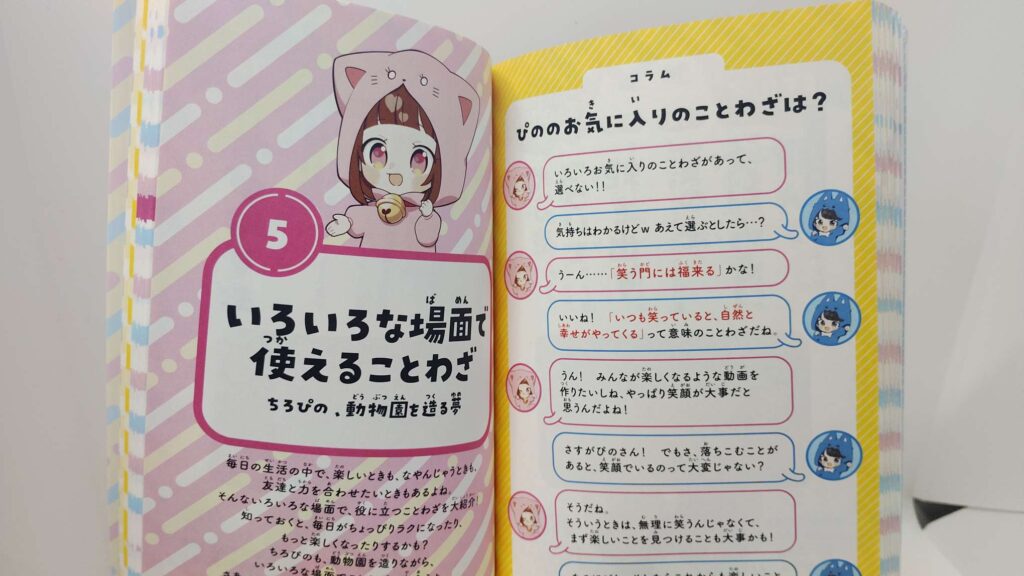 5
いろいろな場面で
使えることわざ
ちろぴの、動物園を造る夢
毎日の生活の中で、楽しいときも、なやんじゃうときも、
友達と力を合わせたいときもあるよね。
そんないろいろな場面で、役に立つことわざを大紹介！
知っておくと、毎日がちょっぴりラクになったり、
もっと楽しくなったりするかも？
ちろぴのも、動物園を造りながら、
コラム
ぴののお気に入りのことわざは？
いろいろお気に入りのことわざがあって、
選べない！！
気持ちはわかるけどw あえて選ぶとしたら…？
うーん……「笑う門には福来る」かな！
いいね！ 「いつも笑っていると、自然と
幸せがやってくる」って意味のことわざだね。
うん！ みんなが楽しくなるような動画を
作りたいしね、やっぱり笑顔が大事だと
思うんだよね！
さすがぴのさん！ でもさ、落ちこむことが
あると、笑顔でいるのって大変じゃない？
そうだね。
そういうときは、無理に笑うんじゃなくて、
まず楽しいことを見つけることも大事かも！